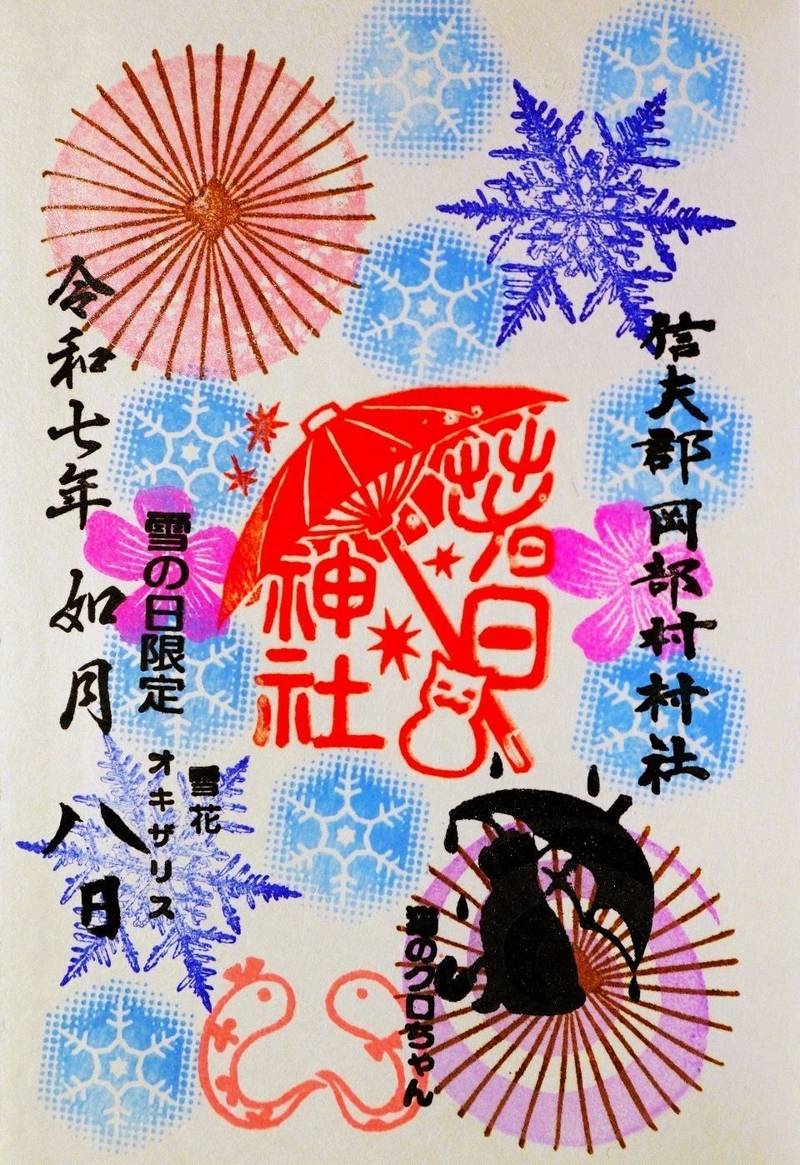 信夫郡岡部村村社
春日
神社
雪の日限定
雪花
オキザリス
令和七年 如月 八日
猫のクロちゃん